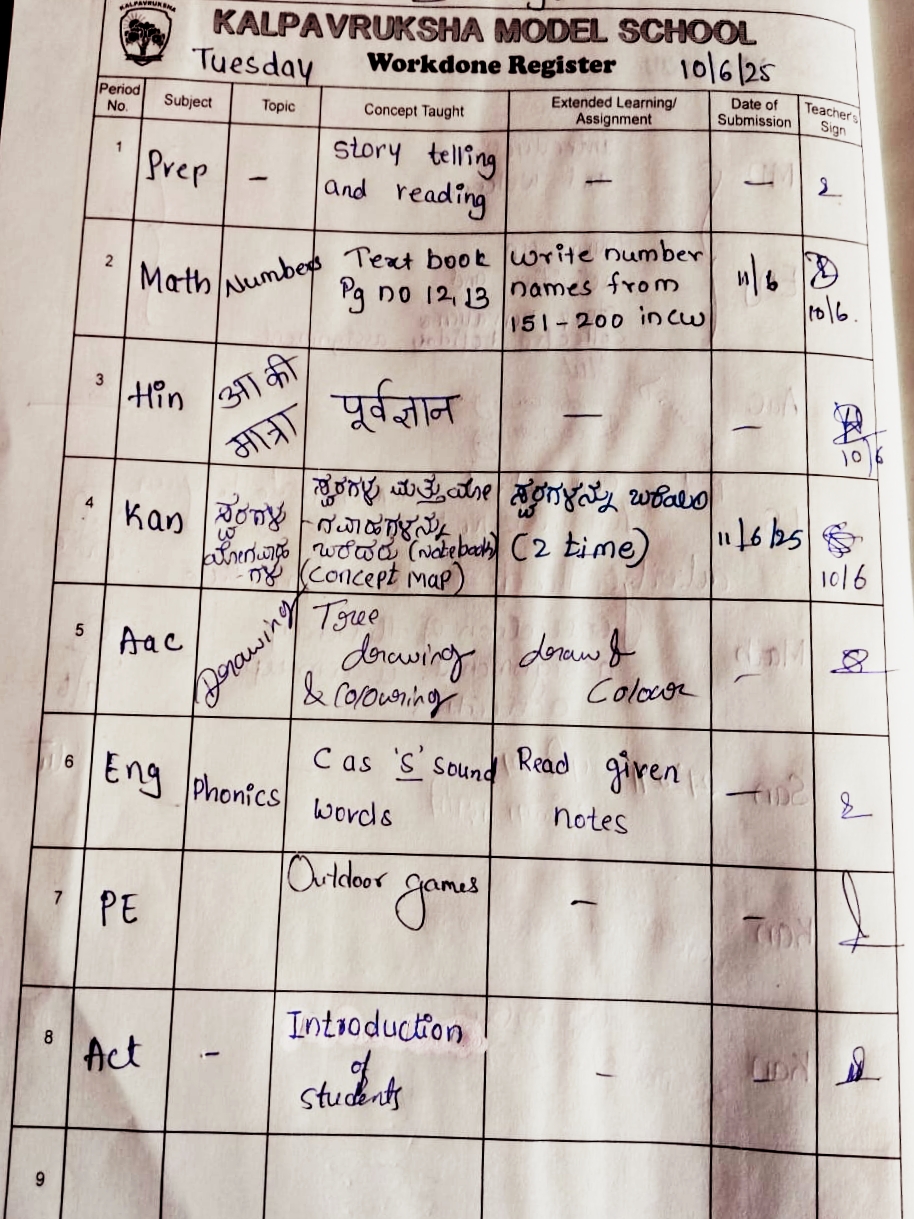 KALPAVRUKSHA
KALPAVRUKSHA MODEL SCHOOL
Tuesday Workdone Register 10/6/25
Period No. Subject Topic Concept Taught Extended Learning/ Assignment Date of Submission Teacher's Sign
1 Prep - story telling and reading - -
2 Math Numbers Text book Pg no 12, 13 Write number names from 151-200 in cw 11/6 10/6.
3 Hin आ की मात्रा पूर्वज्ञान - - 10/6
4 Kan ಸ್ವರಗಳು ಯೋಗವಾಹಗಳು ಸ್ವರಗಳು ಮತ್ತು ಯೋಗವಾಹಗಳನ್ನು ಬರೆದರು (Notebook) (Concept Map) ಸ್ವರಗಳನ್ನು ಬರೆಯಿರಿ (2 time) 11/6/25 10/6
5 Aac Drawing Tree drawing & Colouring draw & Colour -
6 Eng Phonics C as 'S' sound words Read given notes -
7 PE Outdoor games - -
8 Act - Introduction of students - -
9